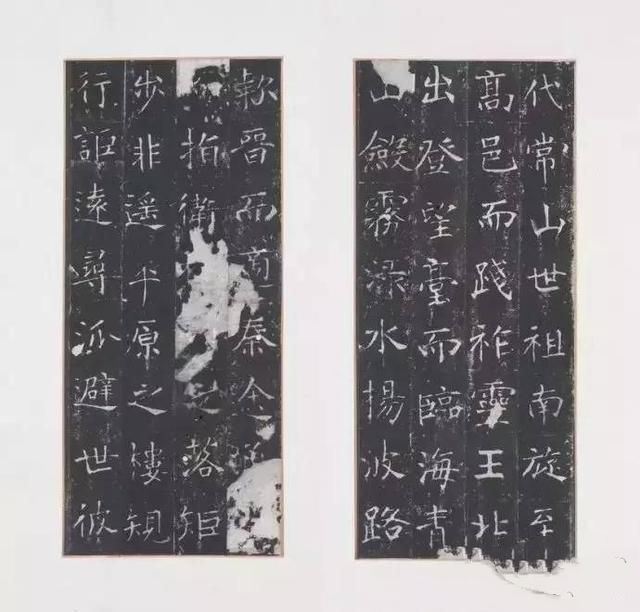 代常山世祖南旋至
髙邑而踐祚靈王北
出登望臺而臨海青
山斂霧渌水揚波路
款晉而秦
指衛之落矩
步非遥平原之樓規
行詎遠尋派避世彼